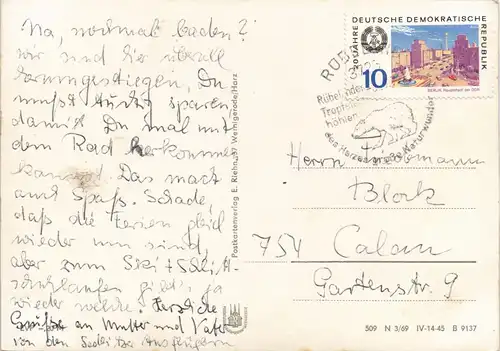 Na, nochmal baden?
wir sind hier überall
herumgestiegen, Du
mußt tüchtig sparen
damit Du mal mit
dem Rad herkommen
kannst. Das macht
Spaß. Schade
daß die Ferien gleich
wieder um sind,
aber zum Ski + Schlitt-
schuhlaufen gibt's ja
wieder welche. Herzliche
Grüße an Mutter und Vater
von den Ausflüglern
Postkartenverlag E. Riehn, 37 Wernigerode/Harz
20 JAHRE DEUTSCHE DEMOKRATISCHE REPUBLIK
10
BERLIN, Hauptstadt der DDR
Rübeländer
Tropfstein
höhlen
des Harzes große Naturwunder
Herrn
Block
754 Calau
Gartenstr. 9
509 N 3/69 IV-14-45 B 9137